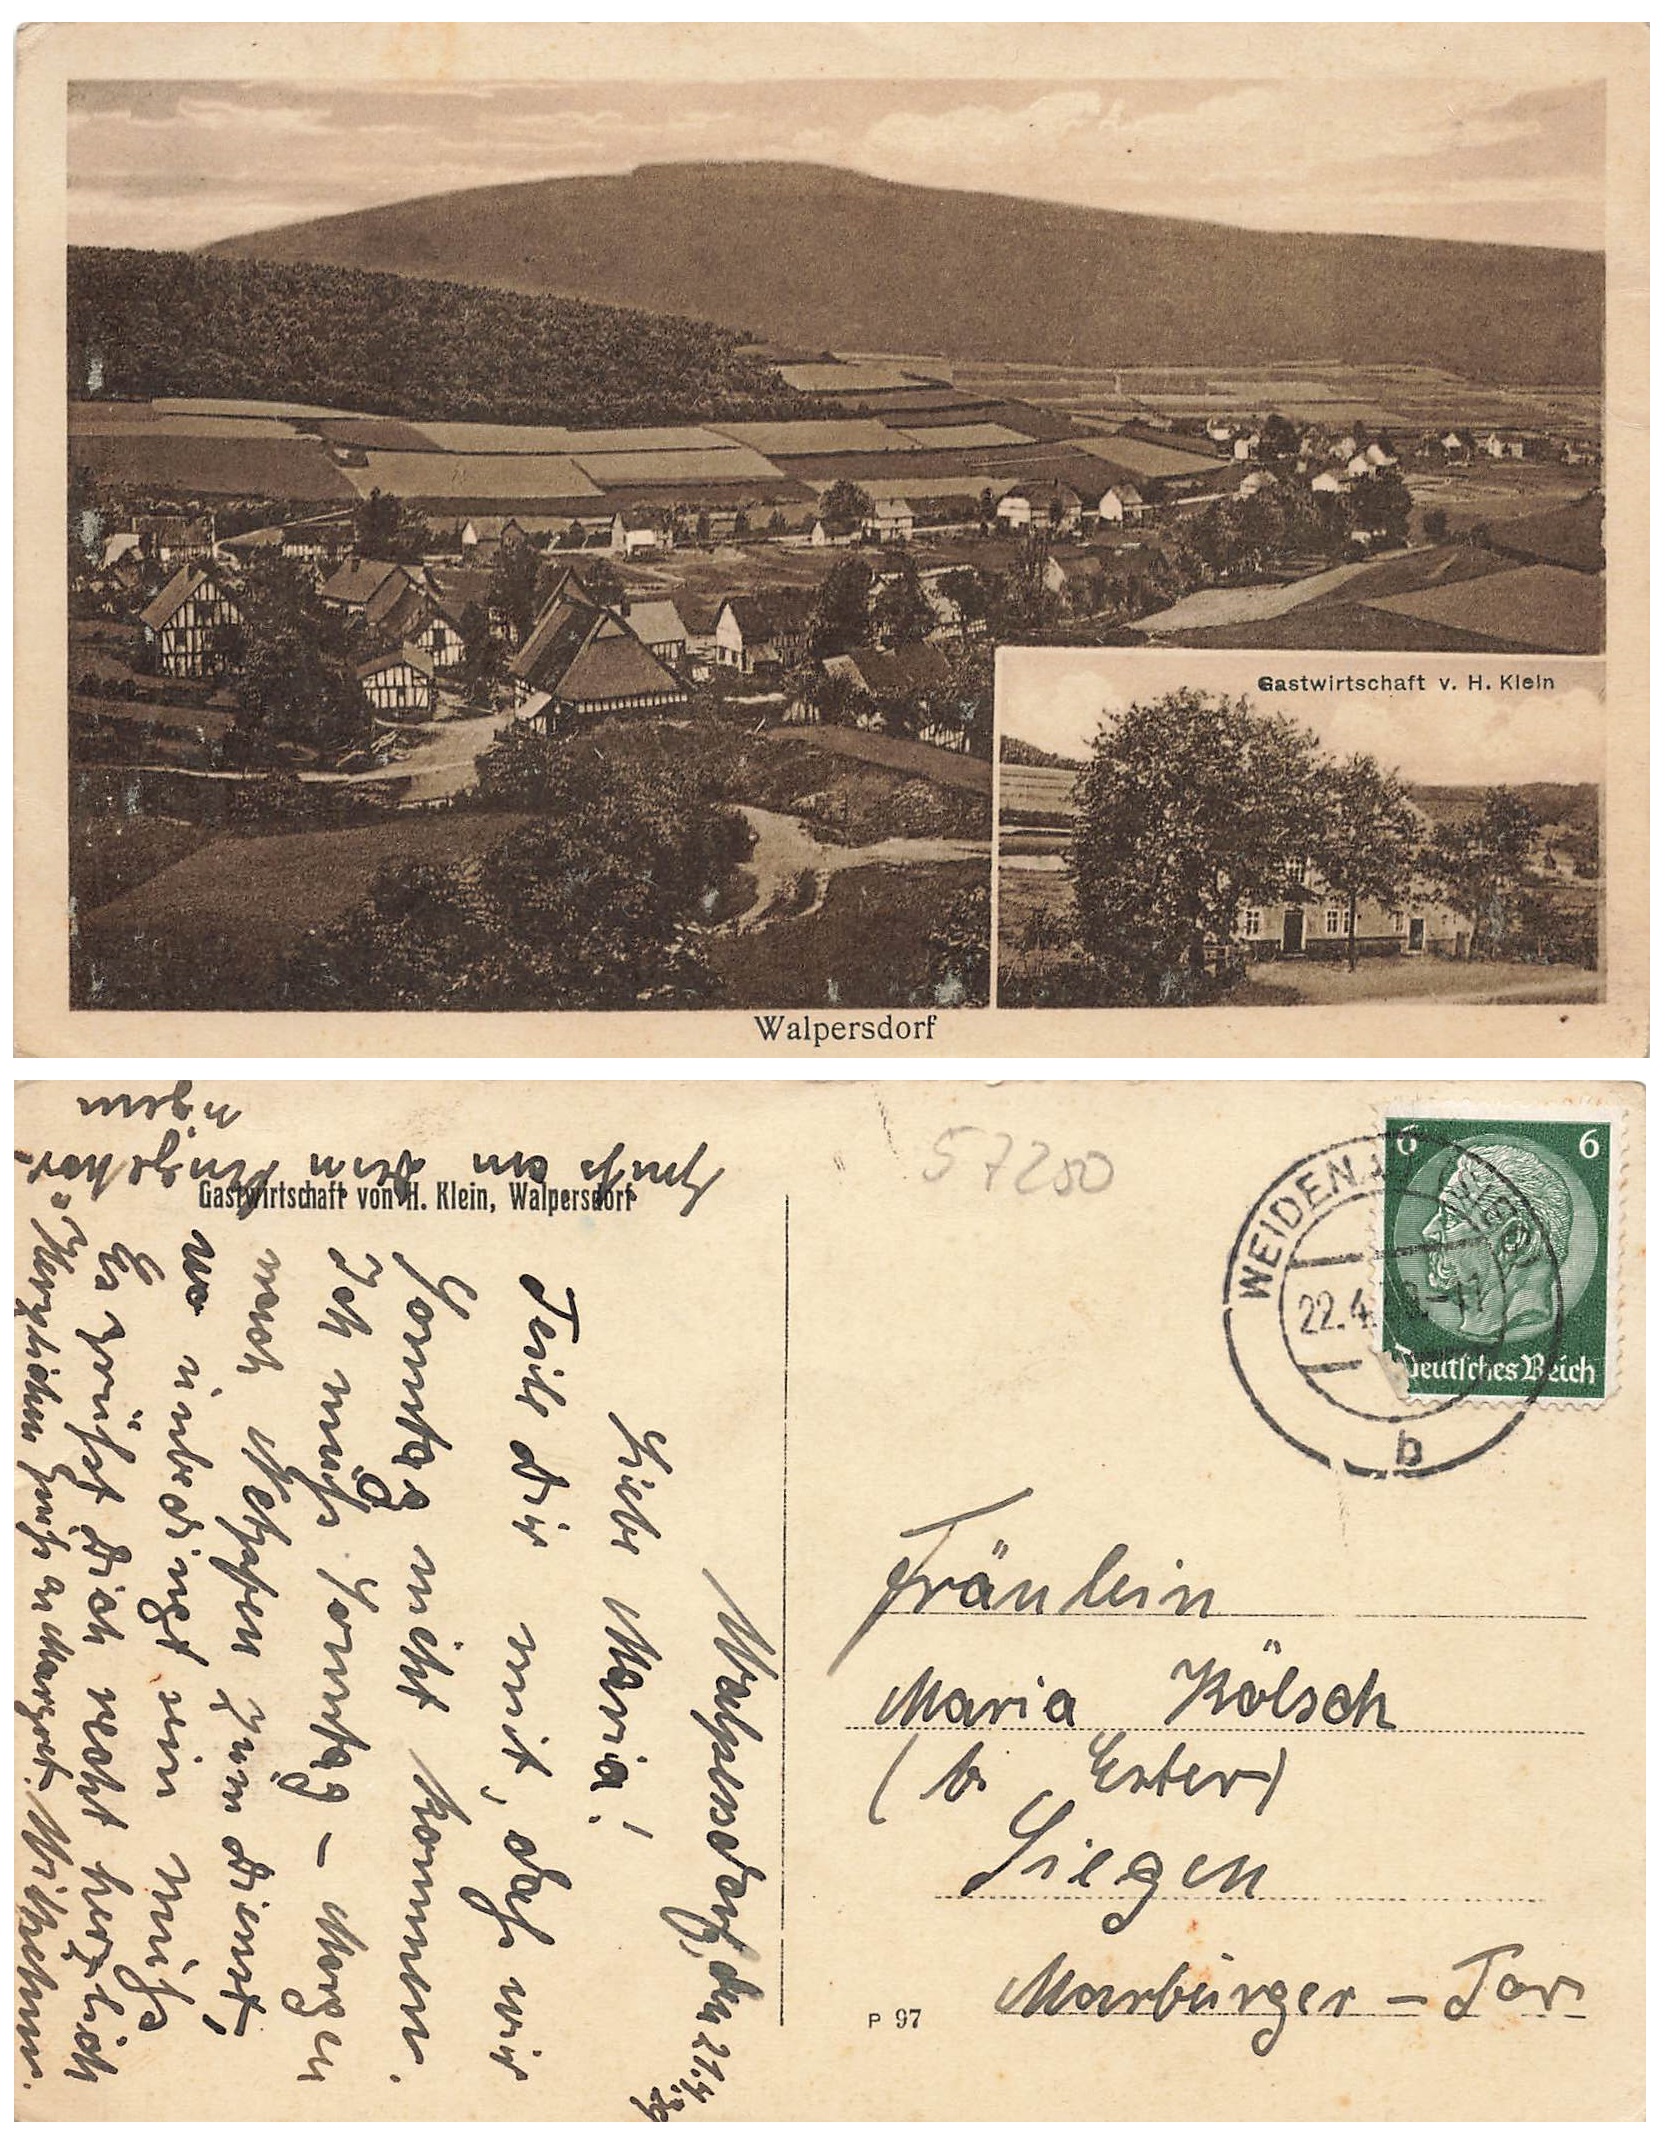 Gastwirtschaft v. H. Klein
Walpersdorf
Gastwirtschaft von H. Klein, Walpersdorf
57250
WEIDENAU (SIEG)
22.4. -17
b
6 6
Deutsches Reich
Walpersdorf, den 21.4.39
Liebe Maria!
Teile dir mit, daß wir
Sonntag nicht kommen.
Ich muß Sonntag – Morgen
nach Netphen zum Dienst,
wo unbedingt hin muß
Es grüßt dich recht herzlich
Wilhelm.
Herzlichen Gruß an Margret.
Gruß an dein Angehö-
rigen
Fräulein
Maria Kölsch
(b. Exter)
Siegen
Marburger – Tor
P 97